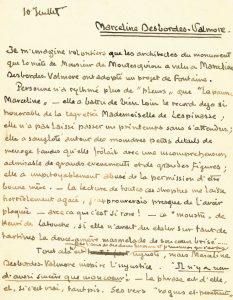 10 Juillet
Marceline Desbordes-Valmore.
Je m'imagine volontiers que les architectes du monument
que le zèle de Monsieur de Montesquiou a valu à Marceline
Desbordes-Valmore ont adopté un projet de fontaine.
Personne n'a rythmé plus de "pleurs" que "la pauvre
Marceline" — elle a battu de bien loin le record déjà si
honorable de la tragédie Mademoiselle de Lespinasse,
elle n'a pas laissé passer un printemps sans s'attendrir;
elle a sangloté autour des moindres petits détails de
ménage tandis qu'elle frôlait avec une incompréhension
admirable de grands événements et de grandes figures,
elle a impitoyablement abusé de la permission d'être
bonne mère. — La lecture de toutes ces strophes me laisse
horriblement agacé, j'approuverais presque de l'avoir
plaquée — avec ce que c'est si rare! — ce "monstre" de
Henri de Latouche, si elle n'avait dû étaler sur tant de
tartines la marmelade de son cœur brisé.
Tout alors injuste, mais Marceline
Desbordes-Valmore inspire l'injustice. "Il n'y a rien
d'aussi sincère que son cœur", — la phrase est d'elle
et, si c'est vrai, tant pis. Ses vers "vagues et